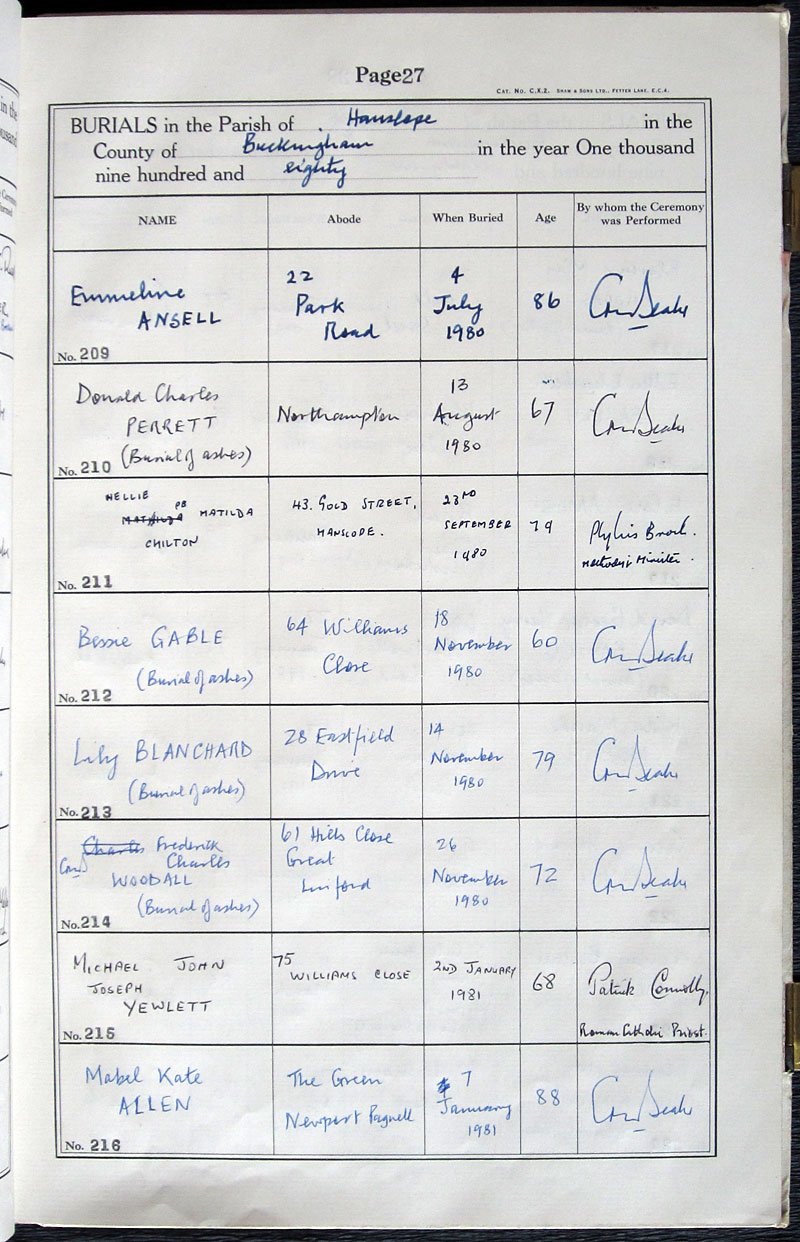 Page27
CAT. NO. C.X.2. SHAW & SONS LTD., FETTER LANE, E.C.4.
BURIALS in the Parish of Hanslope in the
County of Buckingham in the year One thousand
nine hundred and eighty
NAME Abode When Buried Age By whom the Ceremony was Performed
Emmeline
ANSELL
No. 209
22
Park
Road
4
July
1980
86
Donald Charles
PERRETT
(Burial of ashes)
No. 210
Northampton
13
August
1980
67
NELLIE
PB MATILDA
CHILTON
No. 211
43. GOLD STREET,
HANSLOPE.
23RD
SEPTEMBER
1980
79
Phyllis
Methodist Minister.
Bessie GABLE
(Burial of ashes)
No. 212
64 Williams
Close
18
November
1980
60
Lily BLANCHARD
(Burial of ashes)
No. 213
28 Eastfield
Drive
14
November
1980
79
Charles Frederick
Charles
WOODALL
(Burial of ashes)
No. 214
61 Hills Close
Great
Linford
26
November
1980
72
MICHAEL JOHN
JOSEPH
YEWLETT
No. 215
75
WILLIAMS CLOSE
2ND JANUARY
1981
68
Patrick Connolly.
Roman Catholic Priest.
Mabel Kate
ALLEN
No. 216
The Green
Newport Pagnell
7
January
1981
88